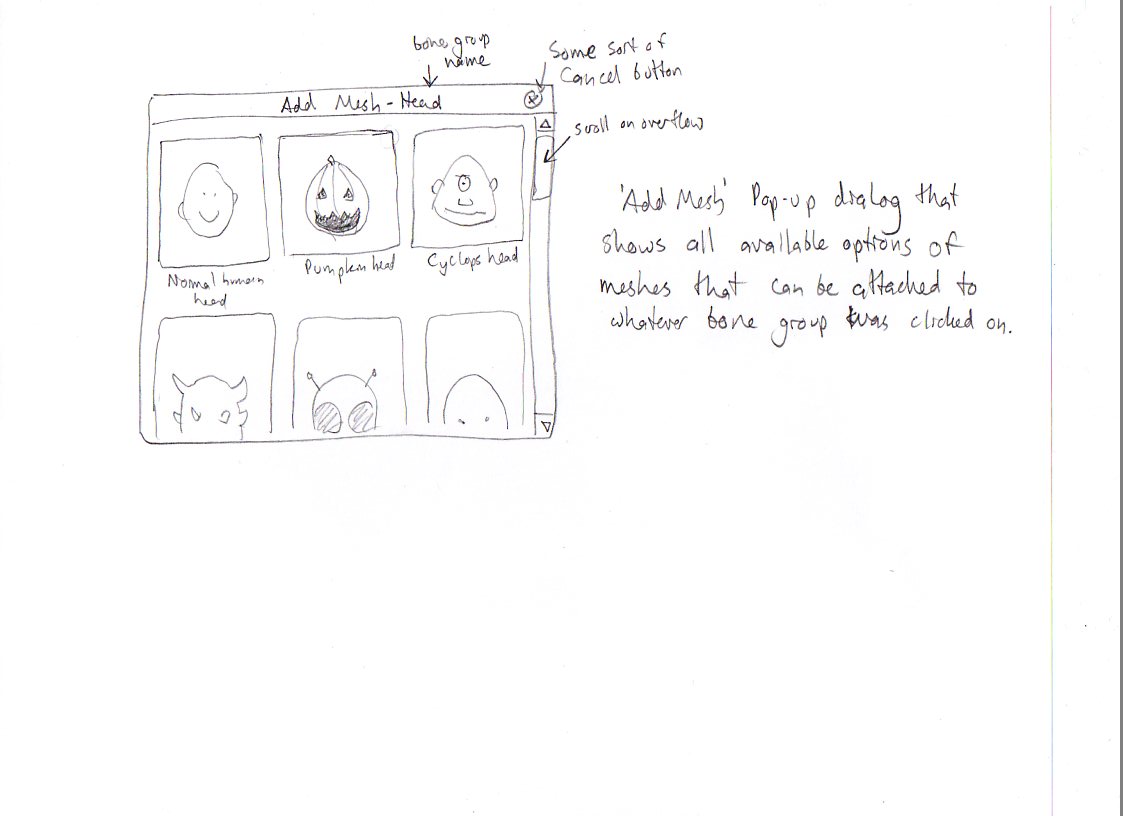 bone group
name
Some sort of
Cancel button
Add Mesh - Head
scroll on overflow
Normal human
head
Pumpkin head
Cyclops head
'Add Mesh' Pop-up dialog that
shows all available options of
meshes that can be attached to
whatever bone group was clicked on.